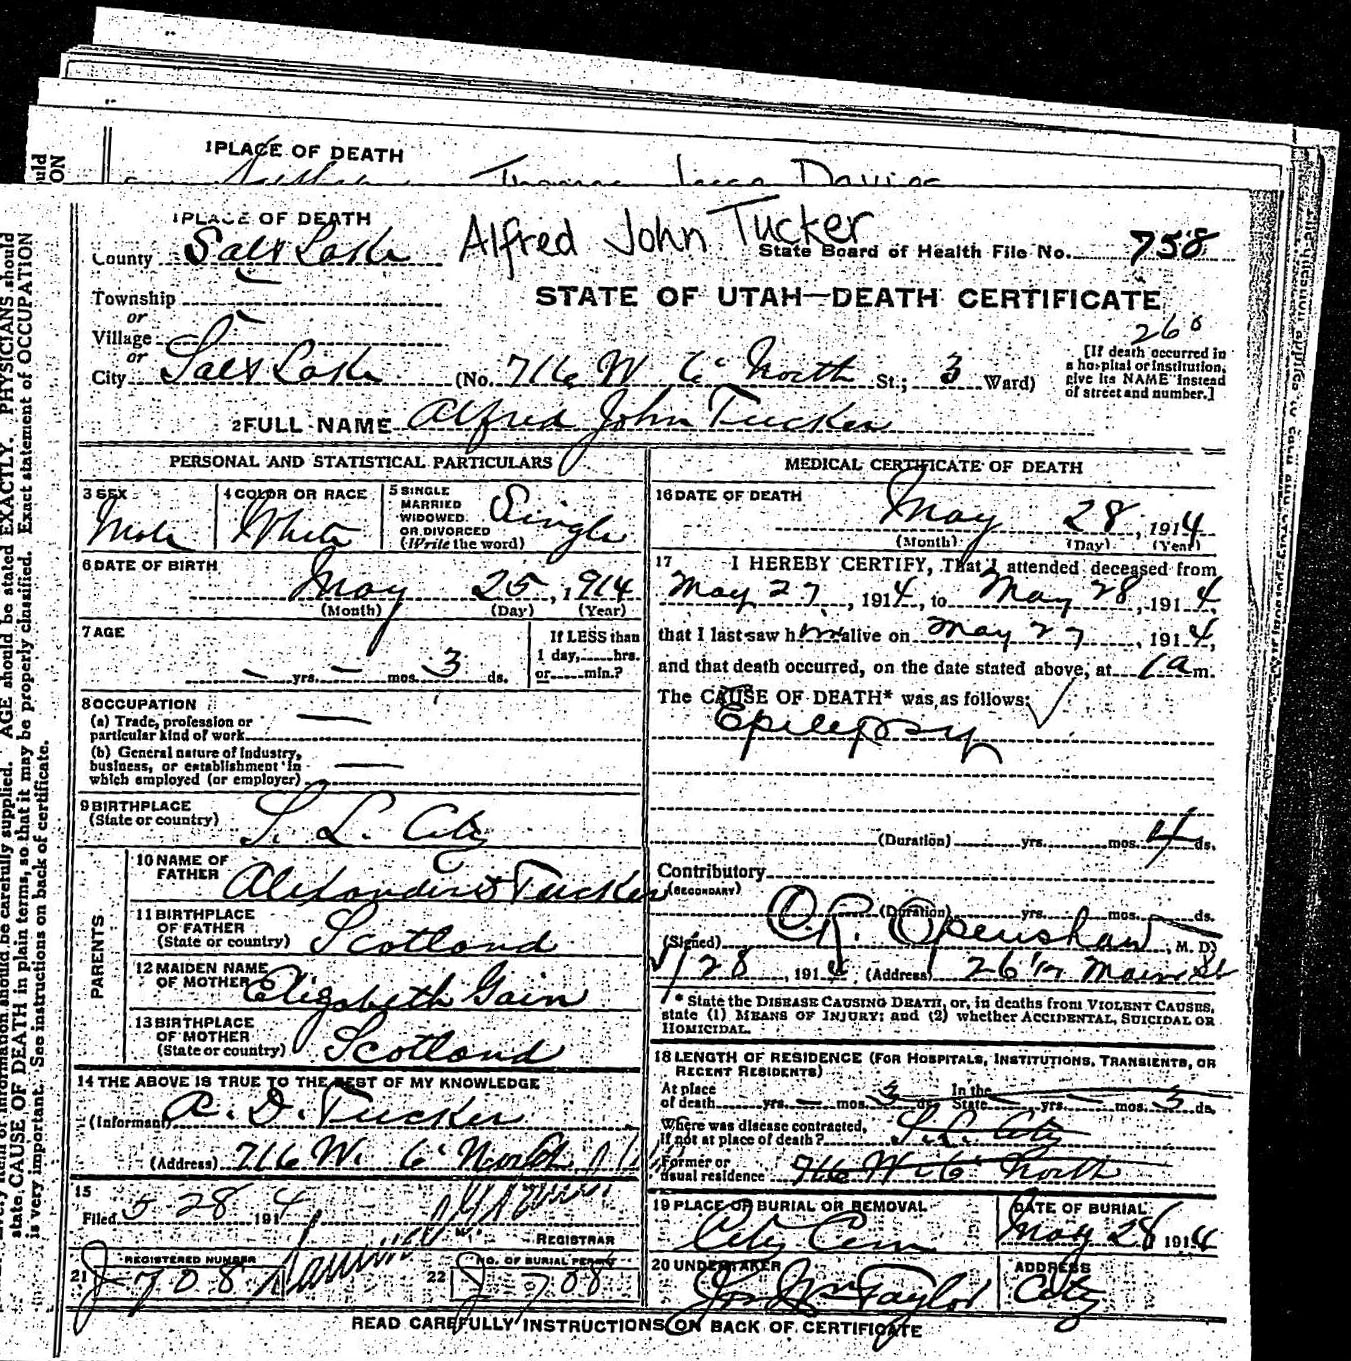 1 PLACE OF DEATH
Thomas Davies
1 PLACE OF DEATH
Alfred John Tucker
County Salt Lake
State Board of Health File No. 758
Township
or
STATE OF UTAH—DEATH CERTIFICATE
Village
or
26
[If death occurred in
a hospital or institution,
give its NAME instead
of street and number.]
City Salt Lake (No. 716 W 6' North St.; 3 Ward)
2 FULL NAME Alfred John Tucker
PERSONAL AND STATISTICAL PARTICULARS
3 SEX Male
4 COLOR OR RACE White
5 SINGLE
MARRIED
WIDOWED
OR DIVORCED
(Write the word) Single
6 DATE OF BIRTH
May 25, 1914
(Month) (Day) (Year)
7 AGE
— yrs. — mos. 3 ds.
If LESS than
1 day, hrs.
or min.?
8 OCCUPATION
(a) Trade, profession or
particular kind of work —
(b) General nature of Industry,
business, or establishment in
which employed (or employer) —
9 BIRTHPLACE
(State or country) S. L. City
PARENTS
10 NAME OF
FATHER Alexander D Tucker
11 BIRTHPLACE
OF FATHER
(State or country) Scotland
12 MAIDEN NAME
OF MOTHER Elizabeth Gain
13 BIRTHPLACE
OF MOTHER
(State or country) Scotland
14 THE ABOVE IS TRUE TO THE BEST OF MY KNOWLEDGE
(Informant) A. D. Tucker
(Address) 716 W. 6' North
15
Filed 5 28 1914
REGISTRAR
21 REGISTERED NUMBER
J 708
22 NO. OF BURIAL PERMIT
J 708
MEDICAL CERTIFICATE OF DEATH
16 DATE OF DEATH
May 28, 1914
(Month) (Day) (Year)
17 I HEREBY CERTIFY, That I attended deceased from
May 27, 1914, to May 28, 1914,
that I last saw him alive on May 27, 1914,
and that death occurred, on the date stated above, at 1 a m.
The CAUSE OF DEATH* was as follows:
Epilepsy
(Duration) yrs. mos. 4 ds.
Contributory
(SECONDARY)
(Duration) yrs. mos. ds.
(Signed) C. R. Openshaw, M. D.
5/28, 1914 (Address) 26 1/2 Main St
* State the DISEASE CAUSING DEATH, or, in deaths from VIOLENT CAUSES,
state (1) MEANS OF INJURY; and (2) whether ACCIDENTAL, SUICIDAL OR
HOMICIDAL.
18 LENGTH OF RESIDENCE (FOR HOSPITALS, INSTITUTIONS, TRANSIENTS, OR
RECENT RESIDENTS)
At place In the
of death yrs. — mos. 3 ds. State yrs. mos. 3 ds.
Where was disease contracted,
if not at place of death? S. L. City
Former or
usual residence 716 W. 6' North
19 PLACE OF BURIAL OR REMOVAL
City Cem
DATE OF BURIAL
May 28 1914
20 UNDERTAKER
Jos Wm Taylor
ADDRESS
City
READ CAREFULLY INSTRUCTIONS ON BACK OF CERTIFICATE
state CAUSE OF DEATH in plain terms, so that it may be properly classified. Exact statement of OCCUPATION
is very important. See instructions on back of certificate.